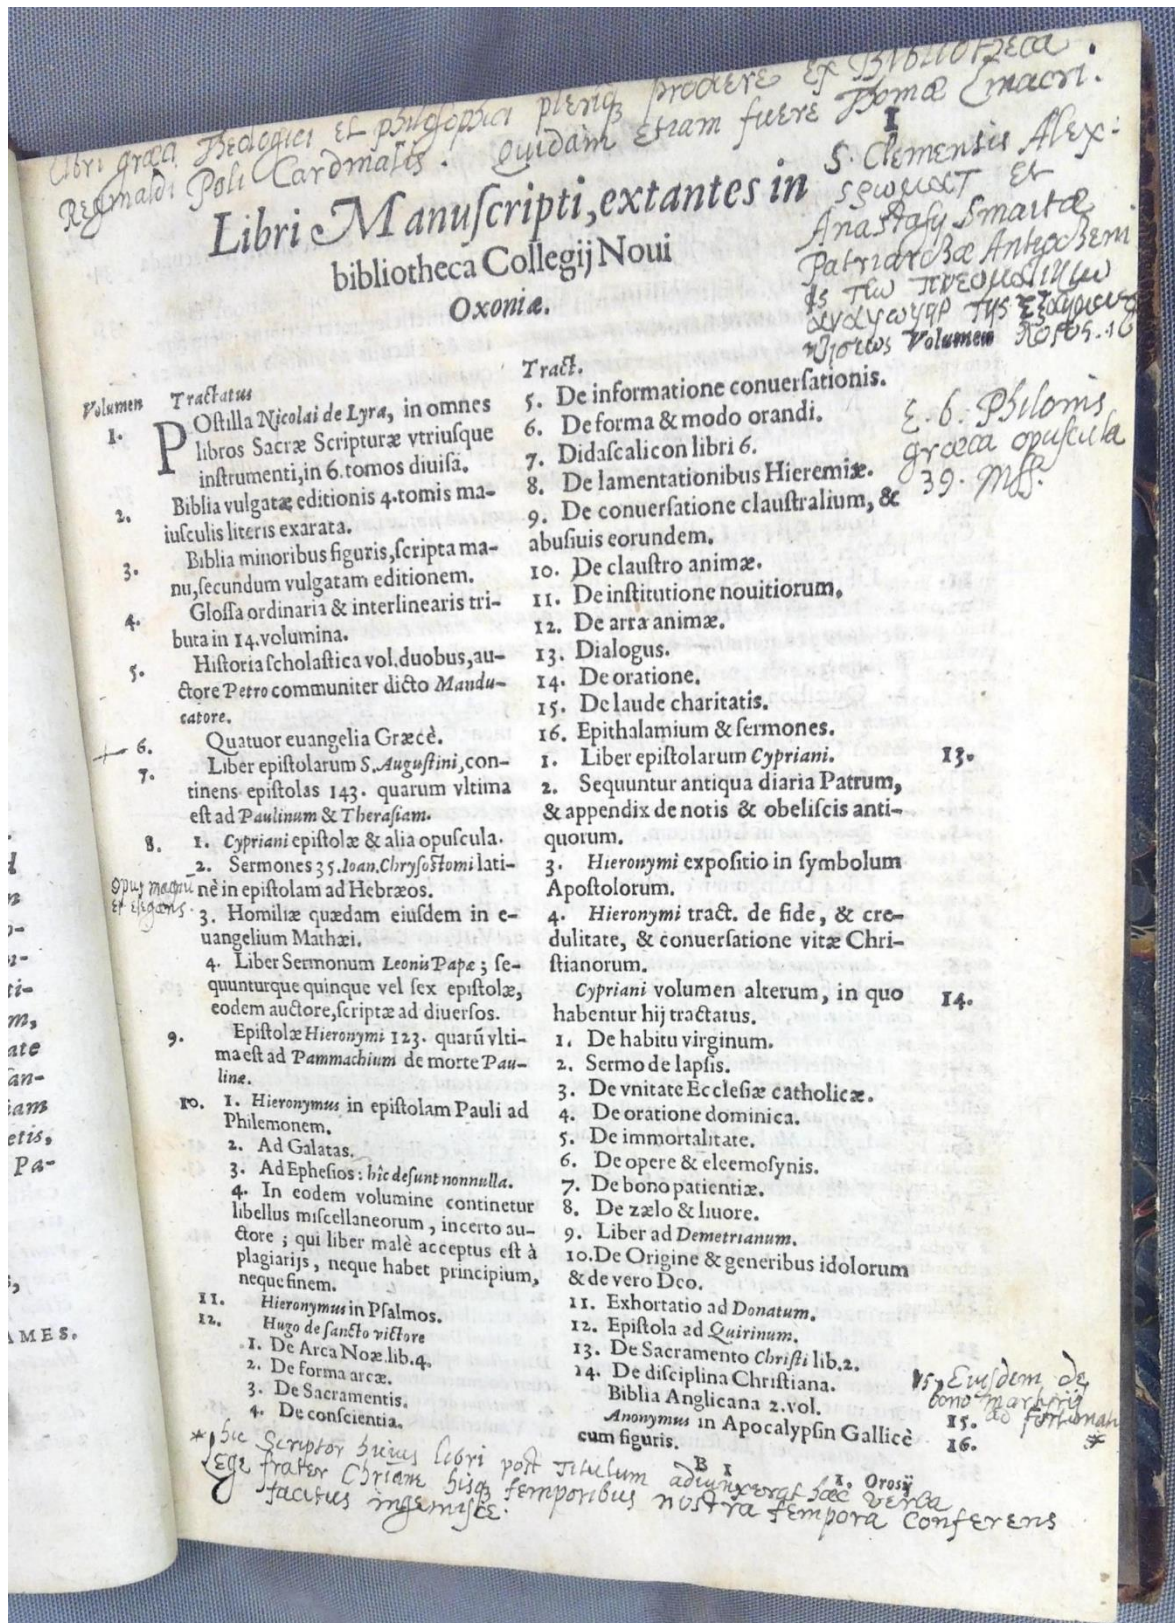 Libri græci Theologici et philosophici pleriq; prodiere ex Bibliotheca
Reginaldi Poli Cardinalis. Quidam etiam fuere Thomæ Linacri.
1
S. Clemensis Alex:
ςρωματ et
Anastasy Sinaitæ
Patriarchæ Antiocheni
Volumen
E. 6. Philonis
græca opuscula
39. Mss.
Libri Manuſcripti, extantes in
bibliotheca Collegij Noui
Oxoniæ.
Volumen Tractatus
1. POſtilla Nicolai de Lyra, in omnes
libros Sacræ Scripturæ vtriuſque
inſtrumenti, in 6. tomos diuiſa.
2. Biblia vulgatæ editionis 4. tomis ma-
iuſculis literis exarata.
3. Biblia minoribus figuris, ſcripta ma-
nu, ſecundum vulgatam editionem.
4. Gloſſa ordinaria & interlinearis tri-
buta in 14. volumina.
5. Hiſtoria ſcholaſtica vol. duobus, au-
ctore Petro communiter dicto Mandu-
catore.
6. Quatuor euangelia Græcè.
7. Liber epiſtolarum S. Auguſtini, con-
tinens epiſtolas 143. quarum vltima
eſt ad Paulinum & Theraſiam.
8. 1. Cypriani epiſtolæ & alia opuſcula.
2. Sermones 35. Ioan. Chryſoſtomi lati-
nè in epiſtolam ad Hebræos.
opus magnū
et elegans.
3. Homiliæ quædam eiuſdem in e-
uangelium Mathæi.
4. Liber Sermonum Leonis Papæ; ſe-
quunturque quinque vel ſex epiſtolæ,
eodem auctore, ſcriptæ ad diuerſos.
9. Epiſtolæ Hieronymi 123. quarū vlti-
ma eſt ad Pammachium de morte Pau-
linæ.
10. 1. Hieronymus in epiſtolam Pauli ad
Philemonem.
2. Ad Galatas.
3. Ad Epheſios: hîc deſunt nonnulla.
4. In eodem volumine continetur
libellus miſcellaneorum, incerto au-
ctore; qui liber malè acceptus eſt à
plagiarijs, neque habet principium,
neque finem.
11. Hieronymus in Pſalmos.
12. Hugo de ſancto victore
1. De Arca Noæ. lib. 4.
2. De forma arcæ.
3. De Sacramentis.
4. De conſcientia.
Tract.
5. De informatione conuerſationis.
6. De forma & modo orandi.
7. Didaſcalicon libri 6.
8. De lamentationibus Hieremiæ.
9. De conuerſatione clauſtralium, &
abuſiuis eorundem.
10. De clauſtro animæ.
11. De inſtitutione nouitiorum.
12. De arra animæ.
13. Dialogus.
14. De oratione.
15. De laude charitatis.
16. Epithalamium & ſermones.
1. Liber epiſtolarum Cypriani. 13.
2. Sequuntur antiqua diaria Patrum,
& appendix de notis & obeliſcis anti-
quorum.
3. Hieronymi expoſitio in ſymbolum
Apoſtolorum.
4. Hieronymi tract. de fide, & cre-
dulitate, & conuerſatione vitæ Chri-
ſtianorum.
Cypriani volumen alterum, in quo 14.
habentur hij tractatus.
1. De habitu virginum.
2. Sermo de lapſis.
3. De vnitate Eccleſiæ catholicæ.
4. De oratione dominica.
5. De immortalitate.
6. De opere & eleemoſynis.
7. De bono patientiæ.
8. De zælo & liuore.
9. Liber ad Demetrianum.
10. De Origine & generibus idolorum
& de vero Deo.
11. Exhortatio ad Donatum.
12. Epiſtola ad Quirinum.
13. De Sacramento Chriſti lib. 2.
14. De diſciplina Chriſtiana.
15. Eiusdem de
bono martyrij
ad fortunat
Biblia Anglicana 2. vol. 15.
Anonymus in Apocalypſin Gallicè 16. *
cum figuris.
B 1
1. Orosij
* hic Scriptor huius libri post titulum adiunxerat hæc verba
Lege frater Chriane hisq; temporibus nostra tempora Conferens
tacitus ingemisce.